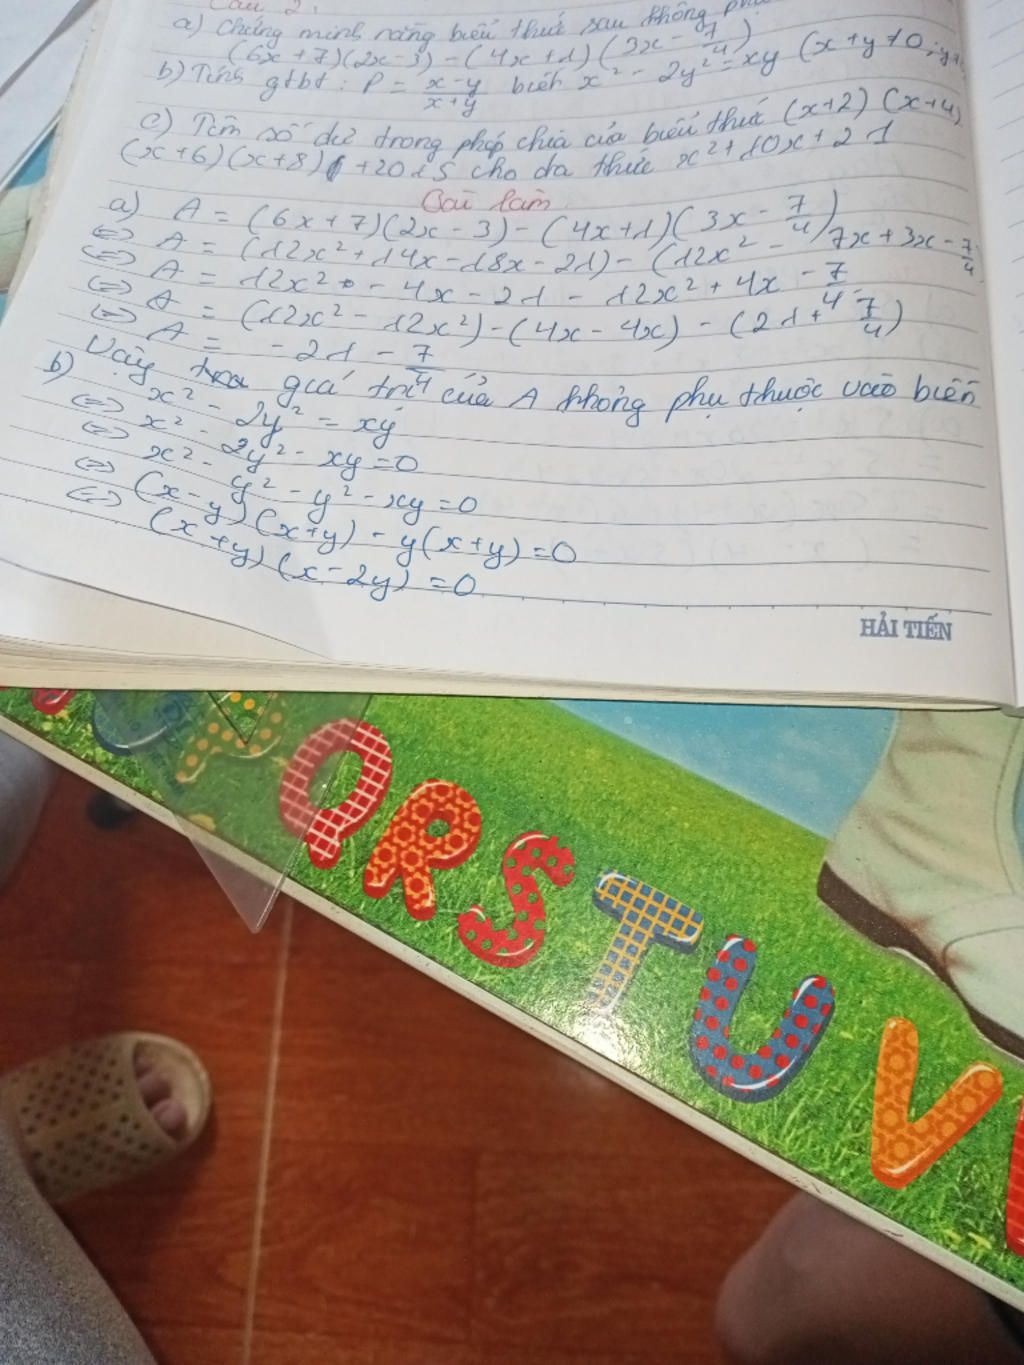 Câu 2:
a) Chứng minh rằng biểu thức sau không
(6x+7)(2x-3)-(4x+1)(3x-7/4)
b) Tính gtbt: P = x-y/x+y biết x² - 2y² = xy (x+y≠0, y≠
c) Tìm số dư trong phép chia của biểu thức (x+2)(x+4)
(x+6)(x+8) +2015 cho đa thức x²+10x+21
Bài làm
a) A = (6x+7)(2x-3)-(4x+1)(3x-7/4)
<=> A = (12x²+14x-18x-21)-(12x²-7x+3x-7/4
<=> A = 12x² - 4x - 21 - 12x² + 4x - 7/4
<=> A = (12x²-12x²)-(4x-4x)-(21+7/4)
<=> A = -21-7/4
Vậy giá trị của A không phụ thuộc vào biến
b) x² - 2y² = xy
<=> x² - 2y² - xy = 0
<=> x² - y² - y² - xy = 0
<=> (x-y)(x+y)-y(x+y)=0
<=> (x+y)(x-2y)=0
HẢI TIẾN
Q R S T U V